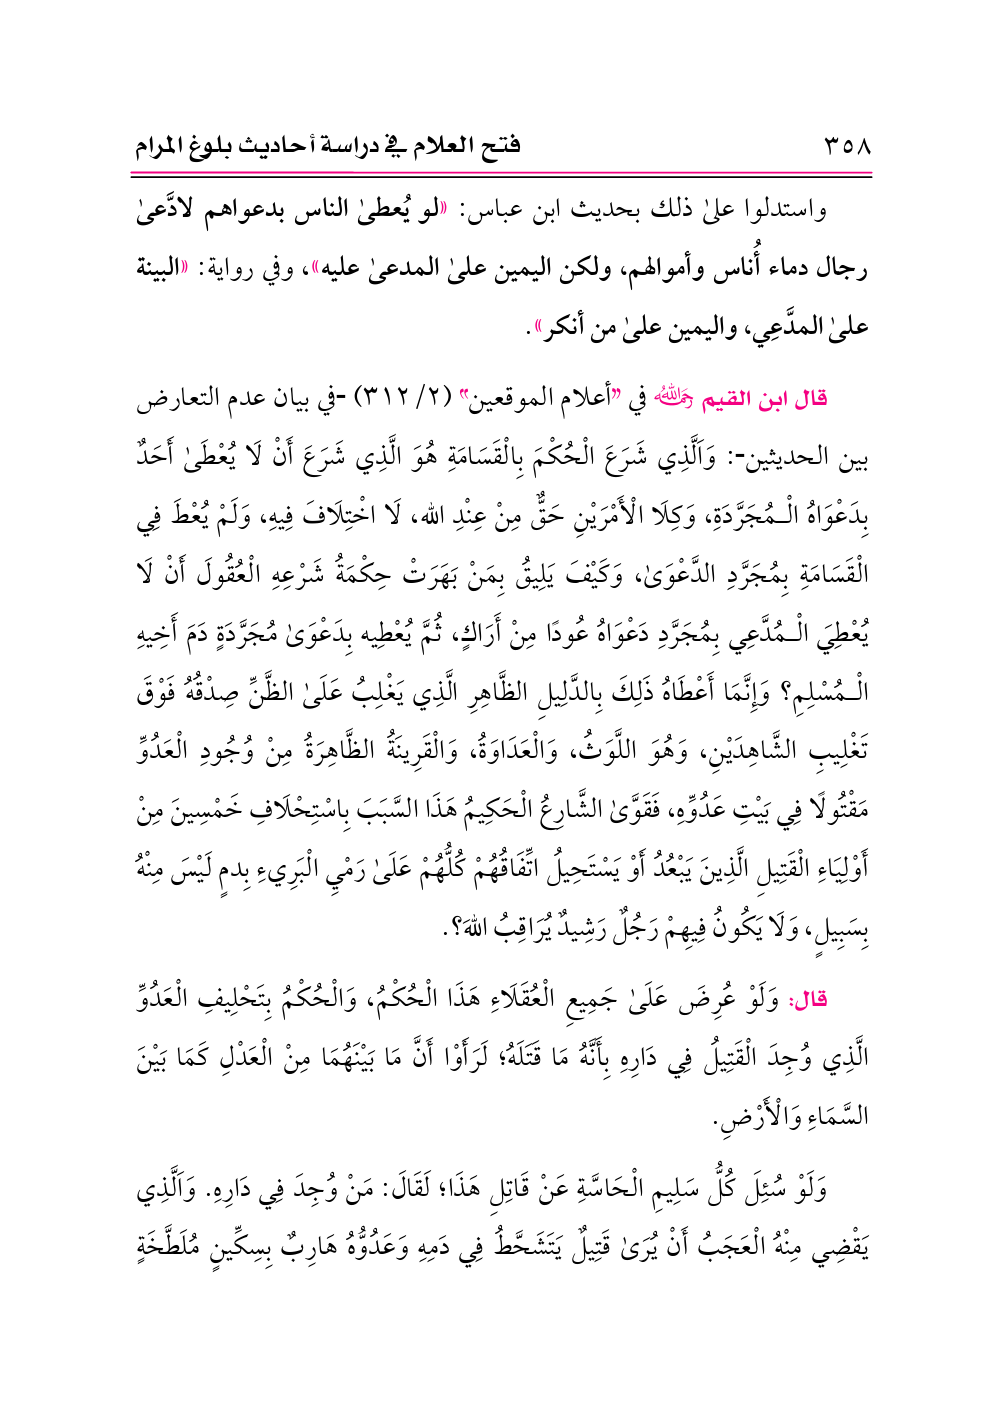 ٣٥٨ فتح العلام في دراسة أحاديث بلوغ المرام
واستدلوا علىٰ ذلك بحديث ابن عباس: «لو يُعطىٰ الناس بدعواهم لادَّعىٰ
رجال دماء أُناس وأموالهم، ولكن اليمين علىٰ المدعىٰ عليه»، وفي رواية: «البينة
علىٰ المدَّعِي، واليمين علىٰ من أنكر».
قال ابن القيم رحمه الله في "أعلام الموقعين" (٢/ ٣١٢) -في بيان عدم التعارض
بين الحديثين-: وَاَلَّذِي شَرَعَ الْحُكْمَ بِالْقَسَامَةِ هُوَ الَّذِي شَرَعَ أَنْ لَا يُعْطَىٰ أَحَدٌ
بِدَعْوَاهُ الْـمُجَرَّدَةِ، وَكِلَا الْأَمْرَيْنِ حَقٌّ مِنْ عِنْدِ الله، لَا اخْتِلَافَ فِيهِ، وَلَمْ يُعْطَ فِي
الْقَسَامَةِ بِمُجَرَّدِ الدَّعْوَىٰ، وَكَيْفَ يَلِيقُ بِمَنْ بَهَرَتْ حِكْمَةُ شَرْعِهِ الْعُقُولَ أَنْ لَا
يُعْطِيَ الْـمُدَّعِي بِمُجَرَّدِ دَعْوَاهُ عُودًا مِنْ أَرَاكٍ، ثُمَّ يُعْطِيه بِدَعْوَىٰ مُجَرَّدَةٍ دَمَ أَخِيهِ
الْـمُسْلِمِ؟ وَإِنَّمَا أَعْطَاهُ ذَلِكَ بِالدَّلِيلِ الظَّاهِرِ الَّذِي يَغْلِبُ عَلَىٰ الظَّنِّ صِدْقُهُ فَوْقَ
تَغْلِيبِ الشَّاهِدَيْنِ، وَهُوَ اللَّوَثُ، وَالْعَدَاوَةُ، وَالْقَرِينَةُ الظَّاهِرَةُ مِنْ وُجُودِ الْعَدُوِّ
مَقْتُولًا فِي بَيْتِ عَدُوِّهِ، فَقَوَّىٰ الشَّارِعُ الْحَكِيمُ هَذَا السَّبَبَ بِاسْتِحْلَافِ خَمْسِينَ مِنْ
أَوْلِيَاءِ الْقَتِيلِ الَّذِينَ يَبْعُدُ أَوْ يَسْتَحِيلُ اتِّفَاقُهُمْ كُلُّهُمْ عَلَىٰ رَمْيِ الْبَرِيءِ بِدمٍ لَيْسَ مِنْهُ
بِسَبِيلٍ، وَلَا يَكُونُ فِيهِمْ رَجُلٌ رَشِيدٌ يُرَاقِبُ اللهَ؟.
قال: وَلَوْ عُرِضَ عَلَىٰ جَمِيعِ الْعُقَلَاءِ هَذَا الْحُكْمُ، وَالْحُكْمُ بِتَحْلِيفِ الْعَدُوِّ
الَّذِي وُجِدَ الْقَتِيلُ فِي دَارِهِ بِأَنَّهُ مَا قَتَلَهُ؛ لَرَأَوْا أَنَّ مَا بَيْنَهُمَا مِنْ الْعَدْلِ كَمَا بَيْنَ
السَّمَاءِ وَالْأَرْضِ.
وَلَوْ سُئِلَ كُلُّ سَلِيمِ الْحَاسَّةِ عَنْ قَاتِلِ هَذَا؛ لَقَالَ: مَنْ وُجِدَ فِي دَارِهِ. وَاَلَّذِي
يَقْضِي مِنْهُ الْعَجَبُ أَنْ يُرَىٰ قَتِيلٌ يَتَشَحَّطُ فِي دَمِهِ وَعَدُوُّهُ هَارِبٌ بِسِكِّينٍ مُلَطَّخَةٍ